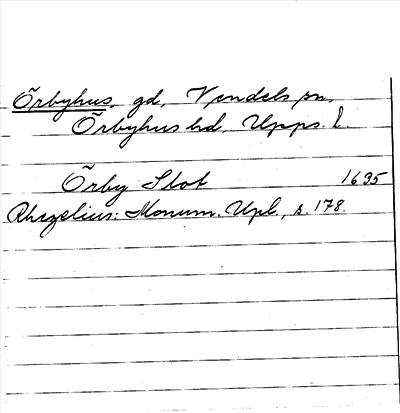 Örbyhus, gd, Vendels sn,
Örbyhus hd, Upps. l.
Örby Slot 1695
Rhezelius: Monum. Upl., s. 178.